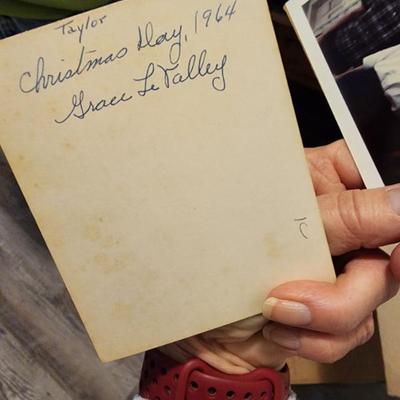 Taylor
Christmas Day, 1964
Grace LeValley
1C